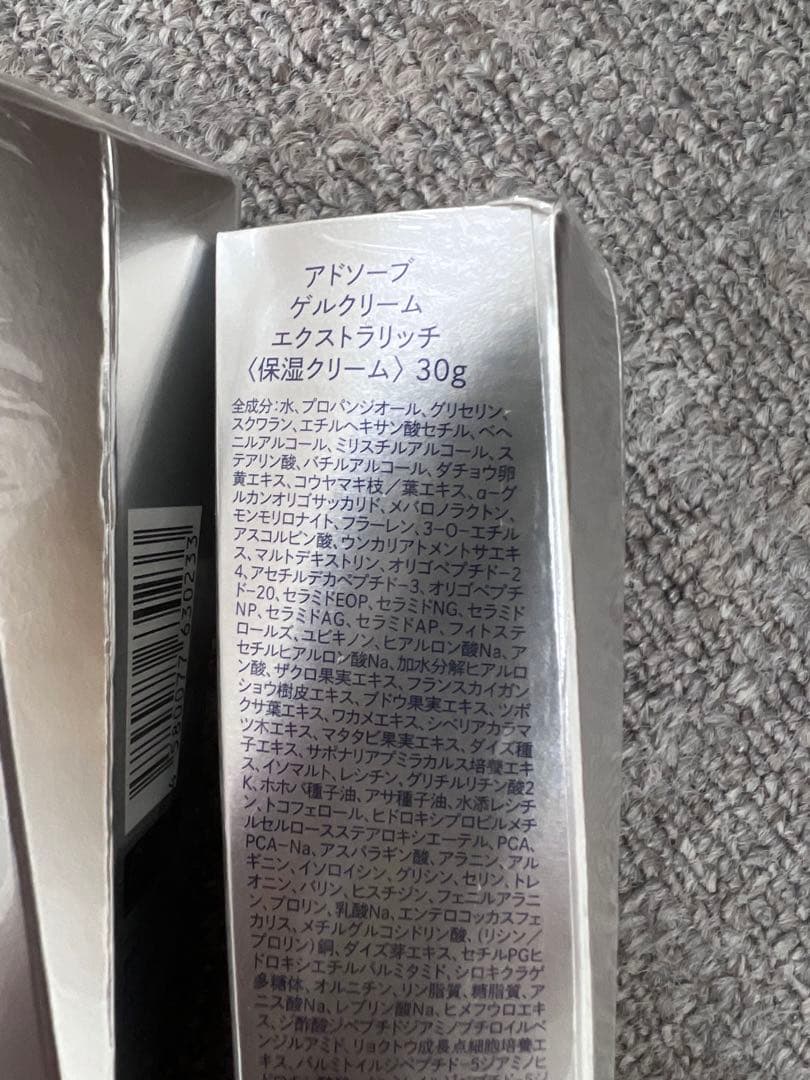 アドソーブ
ゲルクリーム
エクストラリッチ
〈保湿クリーム〉30g
全成分:水、プロパンジオール、グリセリン、
スクワラン、エチルヘキサン酸セチル、ベヘ
ニルアルコール、ミリスチルアルコール、ス
テアリン酸、バチルアルコール、ダチョウ卵
黄エキス、コウヤマキ枝/葉エキス、α-グ
ルカンオリゴサッカリド、メバロノラクトン、
モンモリロナイト、フラーレン、3-O-エチル
アスコルビン酸、ウンカリアトメントサエキ
ス、マルトデキストリン、オリゴペプチド-2
4、アセチルデカペプチド-3、オリゴペプチ
ド-20、セラミドEOP、セラミドNG、セラミド
NP、セラミドAG、セラミドAP、フィトステ
ロールズ、ユビキノン、ヒアルロン酸Na、ア
セチルヒアルロン酸Na、加水分解ヒアルロ
ン酸、ザクロ果実エキス、フランスカイガン
ショウ樹皮エキス、ブドウ果実エキス、ツボ
クサ葉エキス、ワカメエキス、シベリアカラマ
ツ木エキス、マタタビ果実エキス、ダイズ種
子エキス、サポナリアプミラカルス培養エキ
ス、イソマルト、レシチン、グリチルリチン酸2
K、ホホバ種子油、アサ種子油、水添レシチ
ン、トコフェロール、ヒドロキシプロピルメチ
ルセルロースステアロキシエーテル、PCA、
PCA-Na、アスパラギン酸、アラニン、アル
ギニン、イソロイシン、グリシン、セリン、トレ
オニン、バリン、ヒスチジン、フェニルアラニ
ン、プロリン、乳酸Na、エンテロコッカスフェ
カリス、メチルグルコシドリン酸、(リシン/
プロリン)銅、ダイズ芽エキス、セチルPGヒ
ドロキシエチルパルミタミド、シロキクラゲ
多糖体、オルニチン、リン脂質、糖脂質、ア
ニス酸Na、レブリン酸Na、ヒメフウロエキ
ス、ジ酢酸ジペプチドジアミノブチロイルベ
ンジルアミド、リョクトウ成長点細胞培養エ
キス、パルミトイルジペプチド-5ジアミノヒ
4 580077 630233